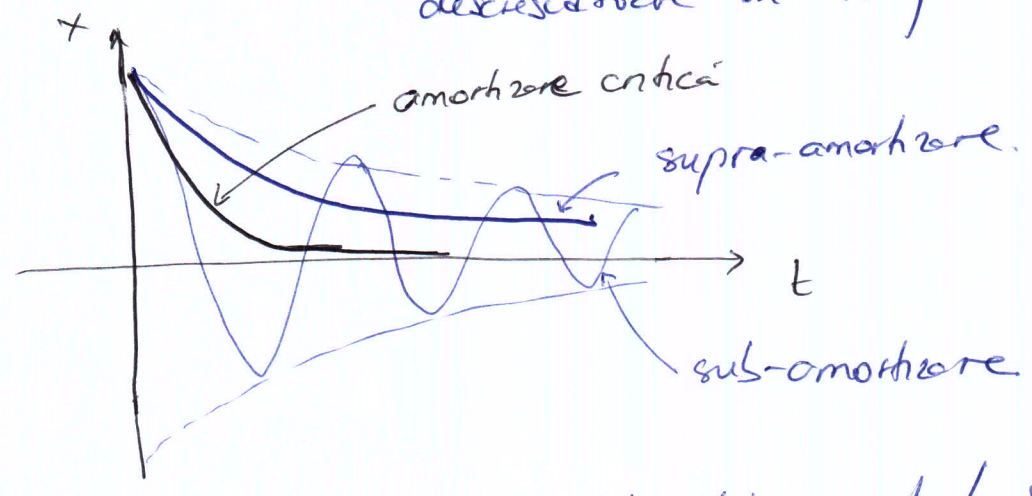 x
amortizare critică
supra-amortizare.
t
sub-amortizare